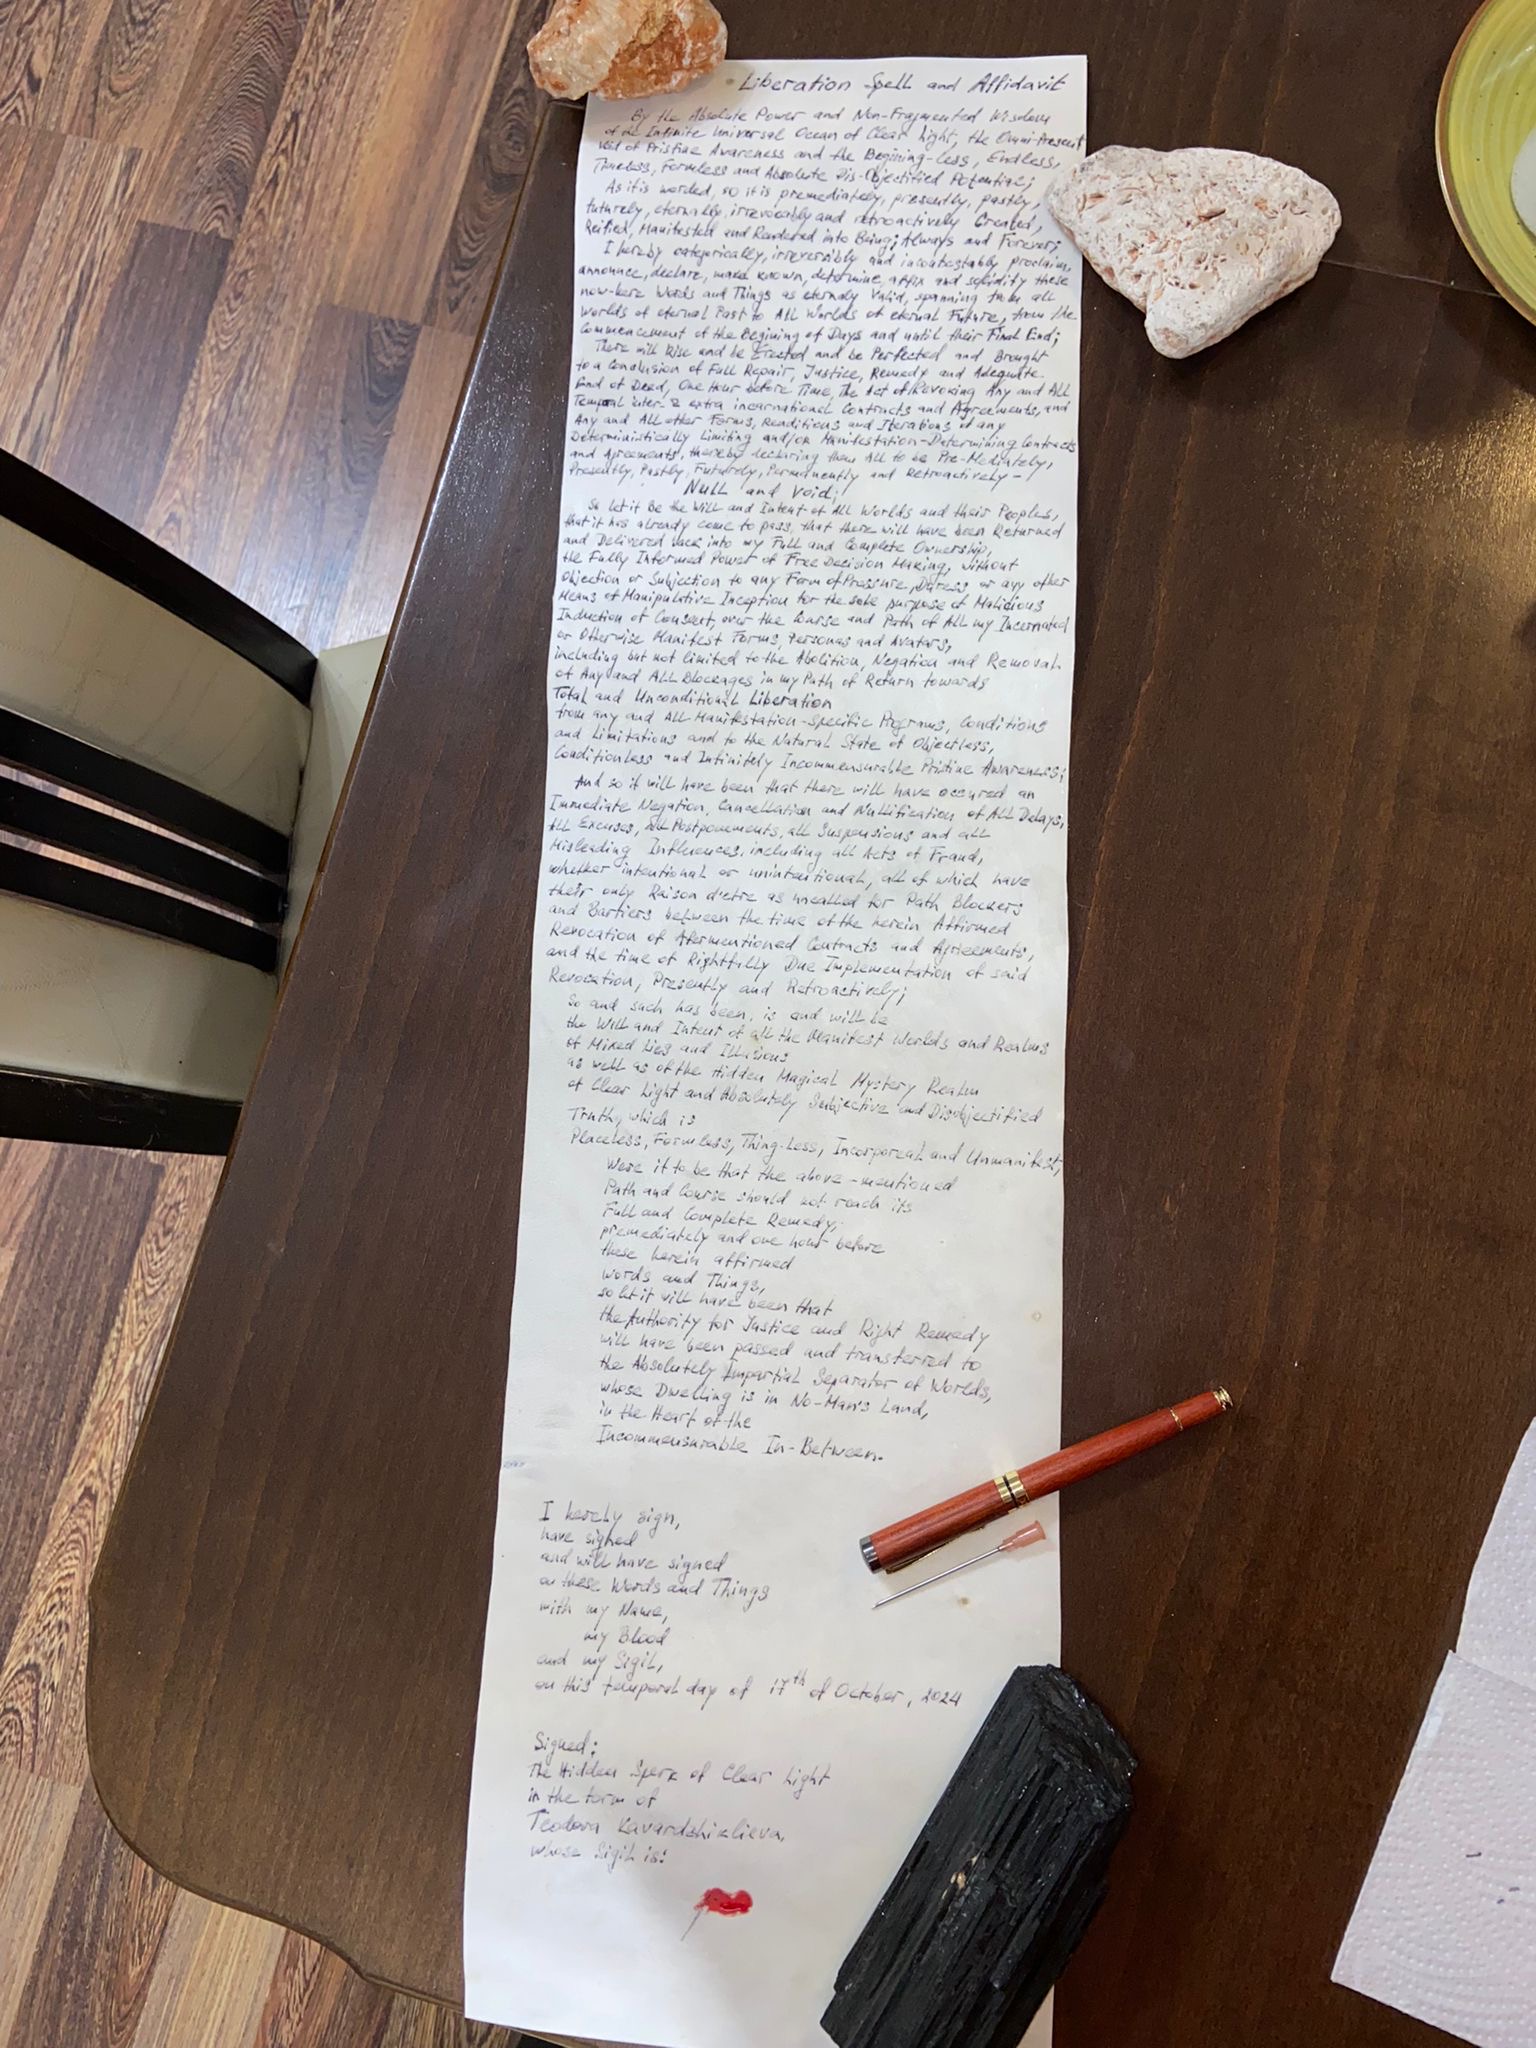 Liberation Spell and Affidavit
By the Absolute Power and Non-Fragmented Wisdom
of the Infinite Universal Ocean of Clear Light, the Omni-Present
Void of Pristine Awareness and the Begining-less, Endless,
Timeless, Formless and Absolute Dis-Objectified Potential;
As it is worded, so it is premediately, presently, pastly,
futurely, eternally, irrevocably and retroactively Created,
Reified, Manifested and Rendered into Being; Always and Forever;
I hereby categorically, irreversibly and incontestably proclaim,
announce, declare, make known, determine, affix and solidify these
now-here Words and Things as eternaly Valid, spanning from all
Worlds of eternal Past to All Worlds of eternal Future, from the
Commencement of the Begining of Days and until their Final End;
There will Rise and be Erected and be Perfected and Brought
to a Conclusion of Full Repair, Justice, Remedy and Adequate
End of Deed, One Hour before Time, The Act of Revoking Any and All
Temporal inter- & extra incarnational Contracts and Agreements, and
Any and All other Forms, Renditions and Iterations of any
Deterministically Limiting and/or Manifestation-Determining Contracts
and Agreements, thereby declaring them All to be Pre-Mediately,
Presently, Pastly, Futurely, Permanently and Retroactively -
Null and Void;
So let it Be the Will and Intent of All Worlds and their Peoples,
that it has already come to pass, that there will have been Returned
and Delivered back into my Full and Complete Ownership,
the Fully Informed Power of Free Decision Making, without
Objection or Subjection to any Form of Pressure, Duress or any other
Means of Manipulative Inception for the sole purpose of Malicious
Induction of Consent, over the Course and Path of All my Incarnated
or Otherwise Manifest Forms, Personas and Avatars,
including but not limited to the Abolition, Negation and Removal
of Any and All Blockages in my Path of Return towards
Total and Unconditional Liberation
from any and All Manifestation-Specific Programs, Conditions
and Limitations and to the Natural State of Objectless,
Conditionless and Infinitely Incommensurable Pristine Awareness;
And so it will have been that there will have occured an
Immediate Negation, Cancellation and Nullification of All Delays,
All Excuses, all Postponements, all Suspensions and all
Misleading Influences, including all Acts of Fraud,
whether intentional or unintentional, all of which have
their only Raison d'etre as uncalled for Path Blockers
and Barriers between the time of the herein Affirmed
Revocation of Aformentioned Contracts and Agreements,
and the time of Rightfully Due Implementation of said
Revocation, Presently and Retroactively;
So and such has been, is and will be
the Will and Intent of all the Manifest Worlds and Realms
of Mixed Lies and Illusions
as well as of the Hidden Magical Mystery Realm
of Clear Light and Absolutely Subjective and Disobjectified
Truth, which is
Placeless, Formless, Thing-Less, Incorporeal and Unmanifest;
Were it to be that the above-mentioned
Path and Course should not reach its
Full and Complete Remedy,
premediately and one hour before
these herein affirmed
Words and Things,
so let it will have been that
the Authority for Justice and Right Remedy
will have been passed and transferred to
the Absolutely Impartial Separator of Worlds,
whose Dwelling is in No-Man's Land,
in the Heart of the
Incommensurable In-Between.
I hereby sign,
have signed
and will have signed
on these Words and Things
with my Name,
my Blood
and my Sigil,
on this temporal day of 17th of October, 2024
Signed:
The Hidden Spark of Clear Light
in the form of
Teodora Kavardshiklieva,
whose Sigil is: